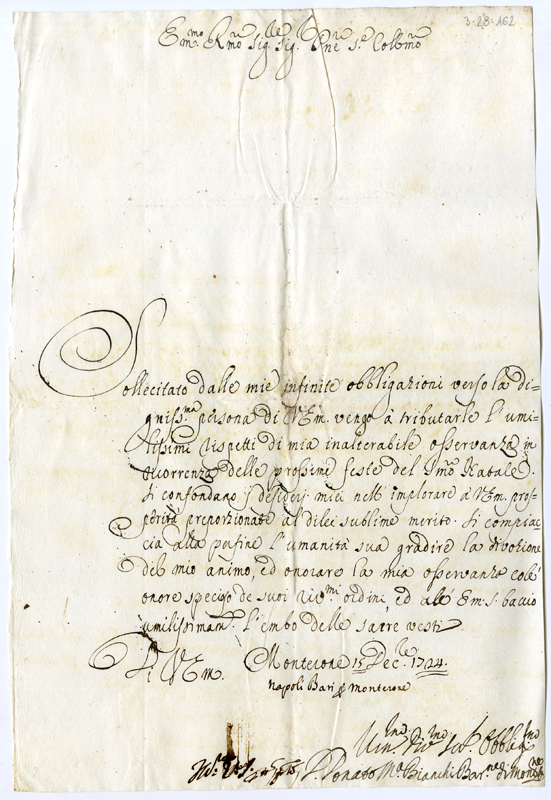 3-28-162
Em.mo R.mo Sig.re Sig.re Pne S.e Coll.mo
Sollecitato dalle mie infinite obbligazioni verso la di-
gniss.ma persona di V Em. vengo à tributarle l'umi-
lissimi rispetti di mia inalterabile osservanza in
occorrenza delle prossime feste del S.mo Natale.
Si confondano i desiderj miei nell'implorare à V Em. pros-
perità proporzionate al di lei sublime merito. Si compiac-
cia alla perfine l'umanità sua gradire la divozione
del mio animo, ed onorare la mia osservanza coll'
onore specioso de suoi riv.mi ordini, ed all' Em. S. bacio
umilissimam.te l'embo delle sacre vesti
Di V Em. Monterone 15 Dec.bre 1724.
Napoli Bari p Monterone
Um.mo Div.mo Ser. Obblig.mo
Donato M.a Bianchi Bar.ne di Mont.ne